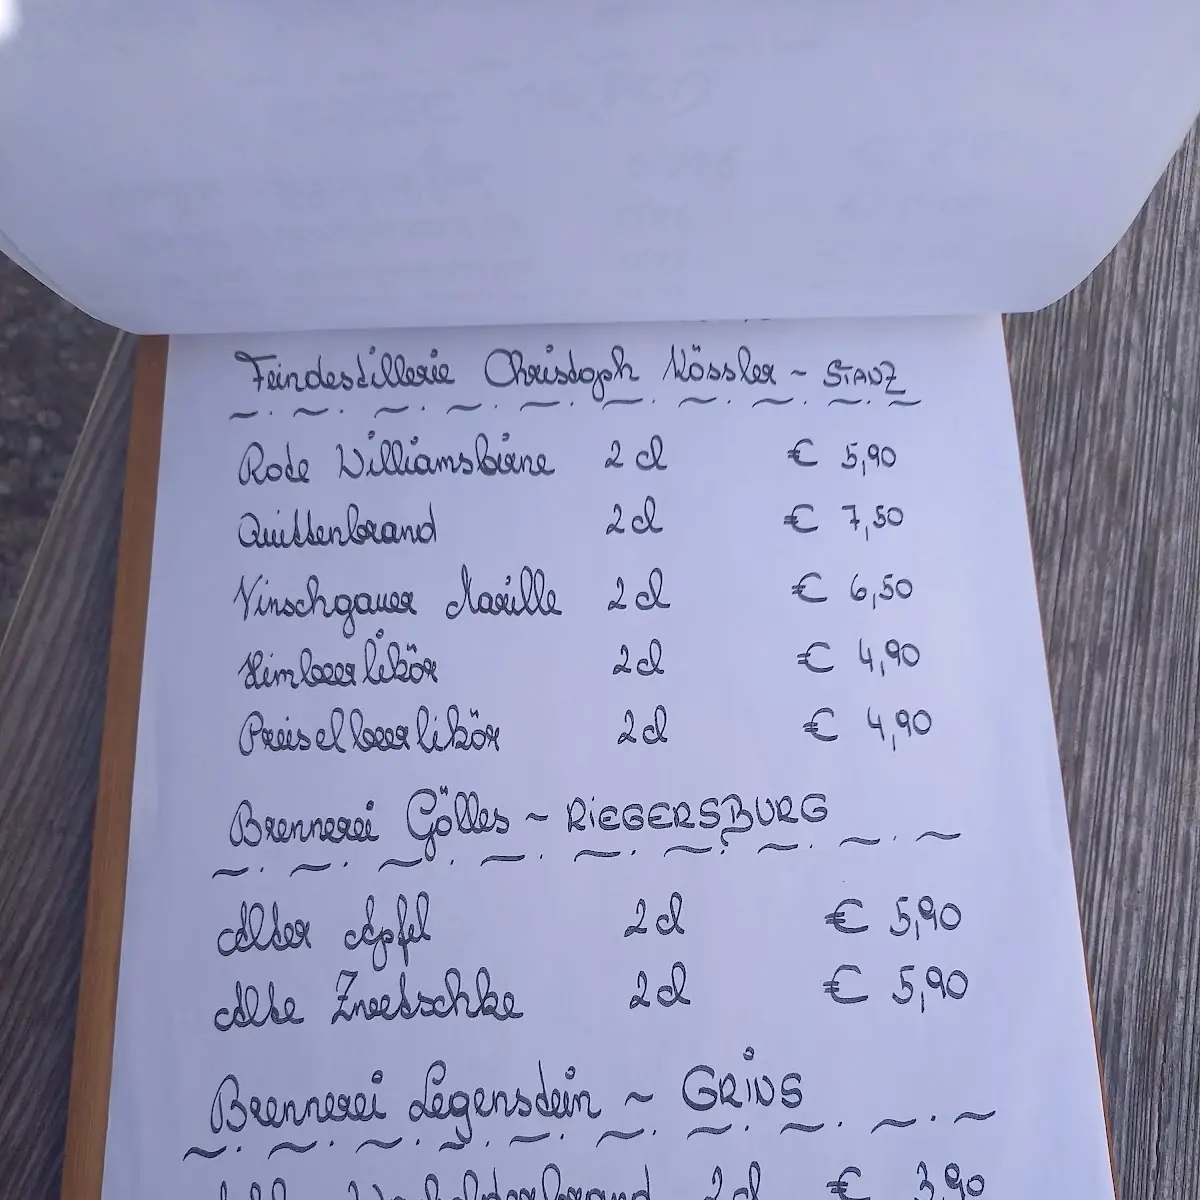 Feindestillerie Christoph Kössler ~ STANZ
Rote Williamsbirne 2 cl € 5,90
Quittenbrand 2 cl € 7,50
Vinschgauer Marille 2 cl € 6,50
Himbeerlikör 2 cl € 4,90
Preiselbeerlikör 2 cl € 4,90
Brennerei Gölles ~ RIEGERSBURG
Alter Apfel 2 cl € 5,90
Alte Zwetschke 2 cl € 5,90
Brennerei Legenstein ~ GRINS
Wacholderbrand 2 cl € 3,90